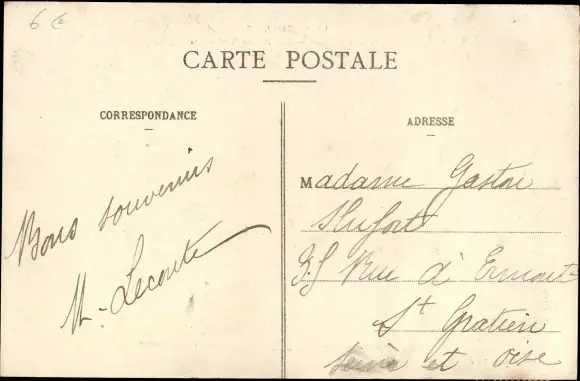 6 €
CARTE POSTALE
CORRESPONDANCE
Bons souvenirs
M. Leconte
ADRESSE
Madame Gaston
Rue d'Ermont
St Gratien
Seine et Oise